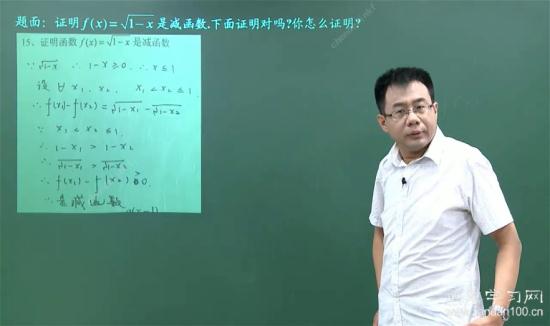 题面：证明f(x)=√1-x是减函数.下面证明对吗?你怎么证明?
15、证明函数f(x)=√1-x是减函数
∵ √1-x ∴ 1-x≥0 ∴ x≤1
设 ∀ x₁, x₂, x₁<x₂≤1
∴ f(x₁)-f(x₂)=√1-x₁-√1-x₂
∵ x₁<x₂≤1
∴ 1-x₁>1-x₂
∴ √1-x₁>√1-x₂
∴ f(x₁)-f(x₂)>0
∴ 是减函数
学习网